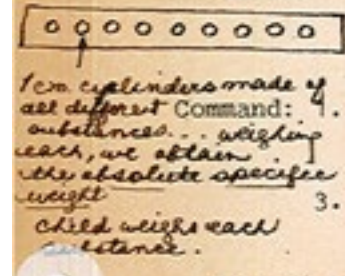 1 cm. cylinders made of
all different Command: 1.
substances... weighing
each, we obtain
the absolute specific
weight 3.
child weighs each
substance.